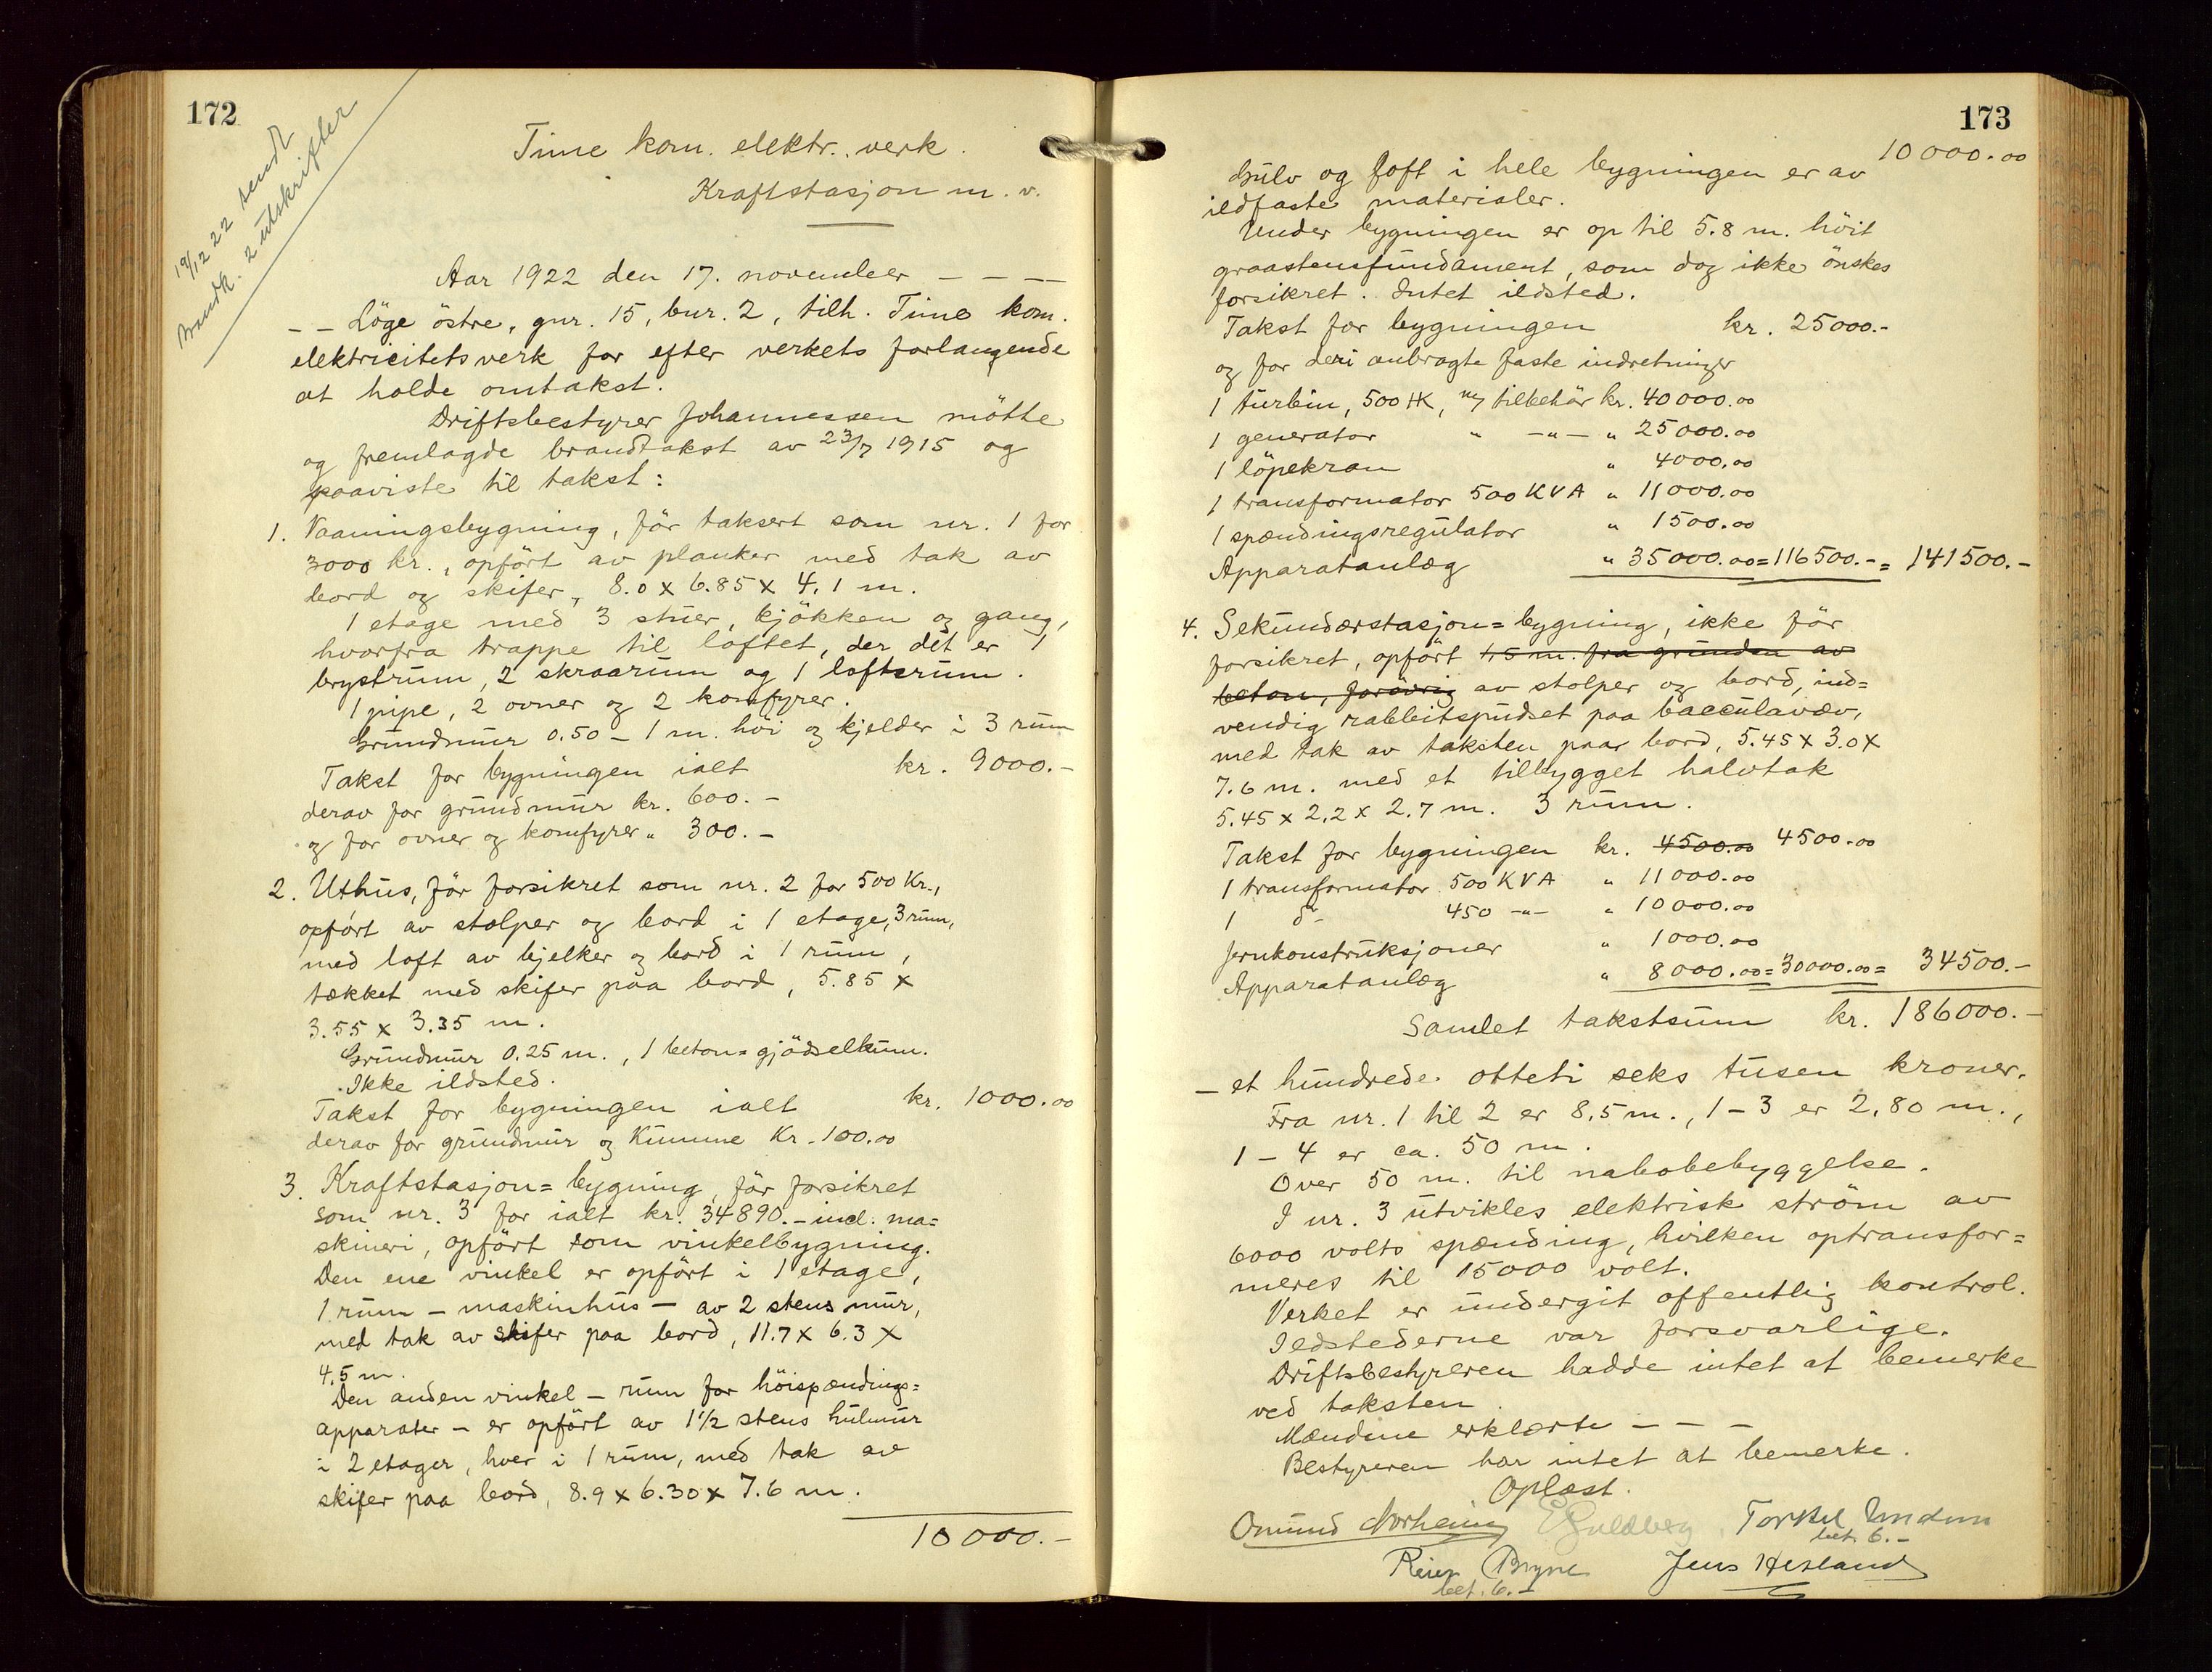 172
19/12 22 sendt
brandk. 2 utskrifter
Time kom. elektr. verk.
Kraftstasjon m. v.
Aar 1922 den 17. november — — —
— — Löge östre, gnr. 15, bnr. 2, tilh. Time kom.
elektricitetsverk for efter verkets forlangende
at holde omtakst.
Driftsbestyrer Johannessen mötte
og fremlagde brandtakst av 23/7 1915 og
paaviste til takst:
1. Vaaningsbygning, för taksert som nr. 1 for
3000 kr., opfört av planker med tak av
bord og skifer, 8.0 x 6.85 x 4,1 m.
1 etage med 3 stuer, kjökken og gang,
hvorfra trappe til loftet, der det er 1
brystrum, 2 skraarum og 1 loftsrum.
1 pipe, 2 ovner og 2 komfyrer.
Grundmur 0.50 – 1 m. höi og kjelder i 3 rum
Takst for bygningen ialt kr. 9000.-
derav for grundmur kr. 600.-
og for ovner og komfyrer „ 300.-
2. Uthus, för forsikret som nr. 2 for 500 Kr.,
opfört av stolper og bord i 1 etage, 3 rum,
med loft av bjelker og bord i 1 rum,
tækket med skifer paa bord, 5.85 x
3.55 x 3.35 m.
Grundmur 0.25 m., 1 beton=gjödselkum.
Ikke ildsted.
Takst for bygningen ialt kr. 1000.00
derav for grundmur og Kumme Kr. 100.00
3. Kraftstasjon=bygning, för forsikret
som nr. 3 for ialt kr. 34890.- incl. ma=
skineri, opfört som vinkelbygning.
Den ene vinkel er opfört i 1 etage,
1 rum – maskinhus – av 2 stens mur,
med tak av skifer paa bord, 11.7 x 6.3 x
4,5 m.
Den anden vinkel – rum for höispændings=
apparater – er opfört av 1 1/2 stens hulmur
i 2 etager, hver i 1 rum, med tak av
skifer paa bord, 8.9 x 6.30 x 7.6 m.
10000.-
173
10000.00
Gulv og loft i hele bygningen er av
ildfaste materialer.
Under bygningen er op til 5.8 m. höit
graastensfundament, som dog ikke önskes
forsikret. Intet ildsted.
Takst for bygningen kr. 25000.-
og for deri anbragte faste indretninger
1 turbin, 500 HK, m/ tilbehör kr. 40000.00
1 generator „ —„— „ 25000.00
1 löpekran „ 4000.00
1 transformator 500 KVA „ 11000.00
1 spændingsregulator „ 1500.00
Apparatanlæg „ 35000.00=116500.-= 141500.-
4. Sekundærstasjon=bygning, ikke för
forsikret, opfört 1,5 m. fra grunden av
beton, forövrig av stolper og bord, ind=
vendig rabbeitspudset paa bacculavæv,
med tak av taksten paa bord, 5.45 x 3.0 x
7.6 m. med et tilbygget halvtak
5.45 x 2.2 x 2.7 m. 3 rum.
Takst for bygningen kr. 4500.00 4500.00
1 transformator 500 KVA „ 11000.00
1 do 450 -„- „ 10000.00
Jernkonstruksjoner „ 1000.00
Apparatanlæg „ 8000.00=30000.00= 34500.-
Samlet takstsum kr. 186000.-
– et hundrede otteti seks tusen kroner.
Fra nr. 1 til 2 er 8,5 m., 1 – 3 er 2,80 m.,
1 – 4 er ca. 50 m.
Over 50 m. til nabobebyggelse.
I nr. 3 utvikles elektrisk ström av
6000 volts spænding, hvilken optransfor=
meres til 15000 volt.
Verket er undergit offentlig kontrol.
Ildstederne var forsvarlige.
Driftsbestyreren hadde intet at bemerke
ved taksten.
Mændene erklærte — — —
Bestyreren har intet at bemerke.
Oplæst.
Omund Norheim E Guldberg. Torkel
bet. 6.-
Reier Bryne Jens Hetland
bet. 6.-